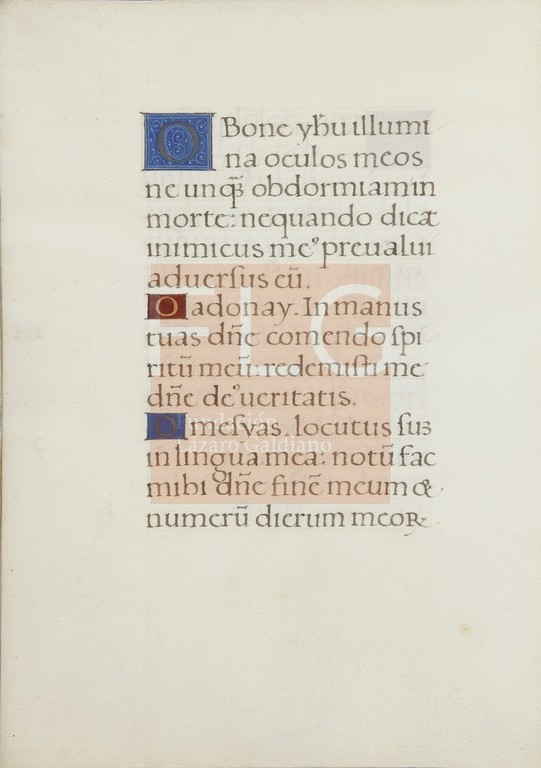 O Bone yhu illumi
na oculos meos
ne unqȝ obdormiam in
morte: nequando dicat
inimicus meꝰ preualui
aduersus eū.
O adonay. In manus
tuas dn̄e comendo spi
ritū meū: redemisti me
dn̄e deꝰ ueritatis.
O mesyas. locutus sus
in lingua mea: notū fac
mihi dn̄e finē meum &
numerū dierum meoꝝ
FLG
Fundación
Lázaro Galdiano